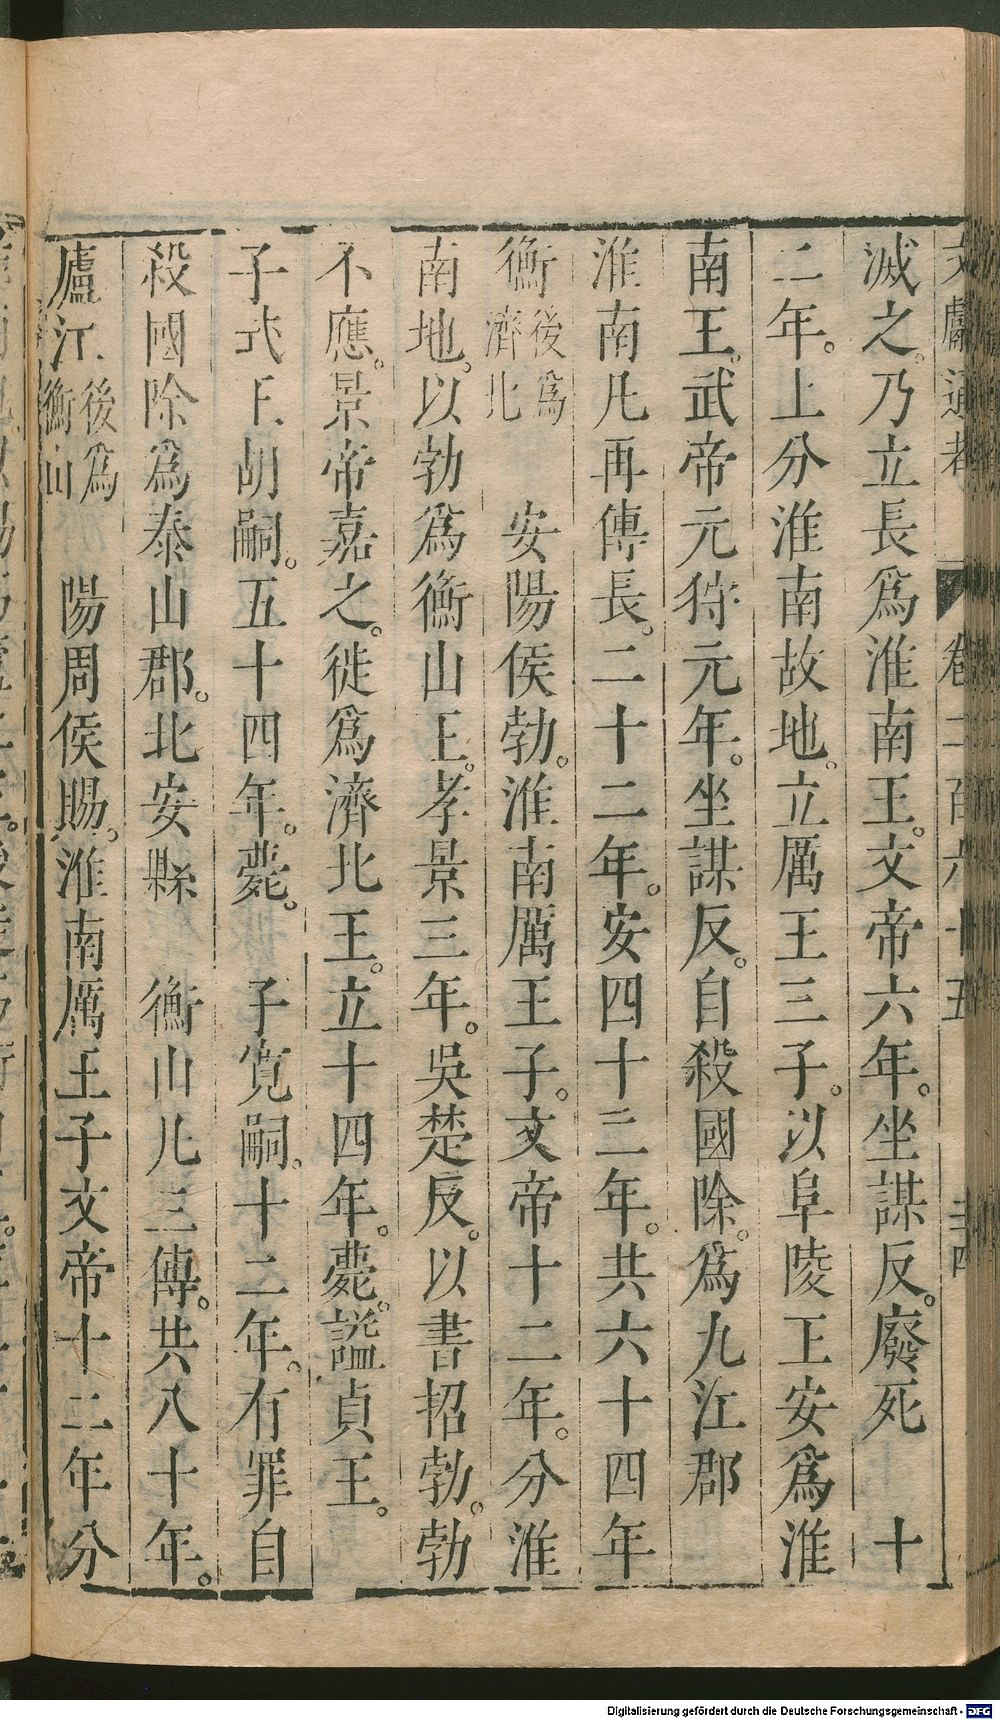 文獻通考 卷二百六十五 三十四
滅之。乃立長爲淮南王。文帝六年。坐謀反。廢死 十
二年。上分淮南故地。立厲王三子。以阜陵王安爲淮
南王。武帝元狩元年。坐謀反。自殺國除。爲九江郡
淮南凡再傳長。二十二年。安四十二年。共六十四年
衡後爲濟北 安陽侯勃。淮南厲王子。文帝十二年。分淮
南地。以勃爲衡山王。孝景三年。吳楚反。以書招勃。勃
不應。景帝嘉之。徙爲濟北王。立十四年。薨。謚貞王。
子式王胡嗣。五十四年。薨。 子寬嗣。十二年。有罪自
殺國除爲泰山郡。北安縣 衡山凡三傳。共八十年。
廬江後爲衡山 陽周侯賜。淮南厲王子文帝十二年分
Digitalisierung gefördert durch die Deutsche Forschungsgemeinschaft - DFG